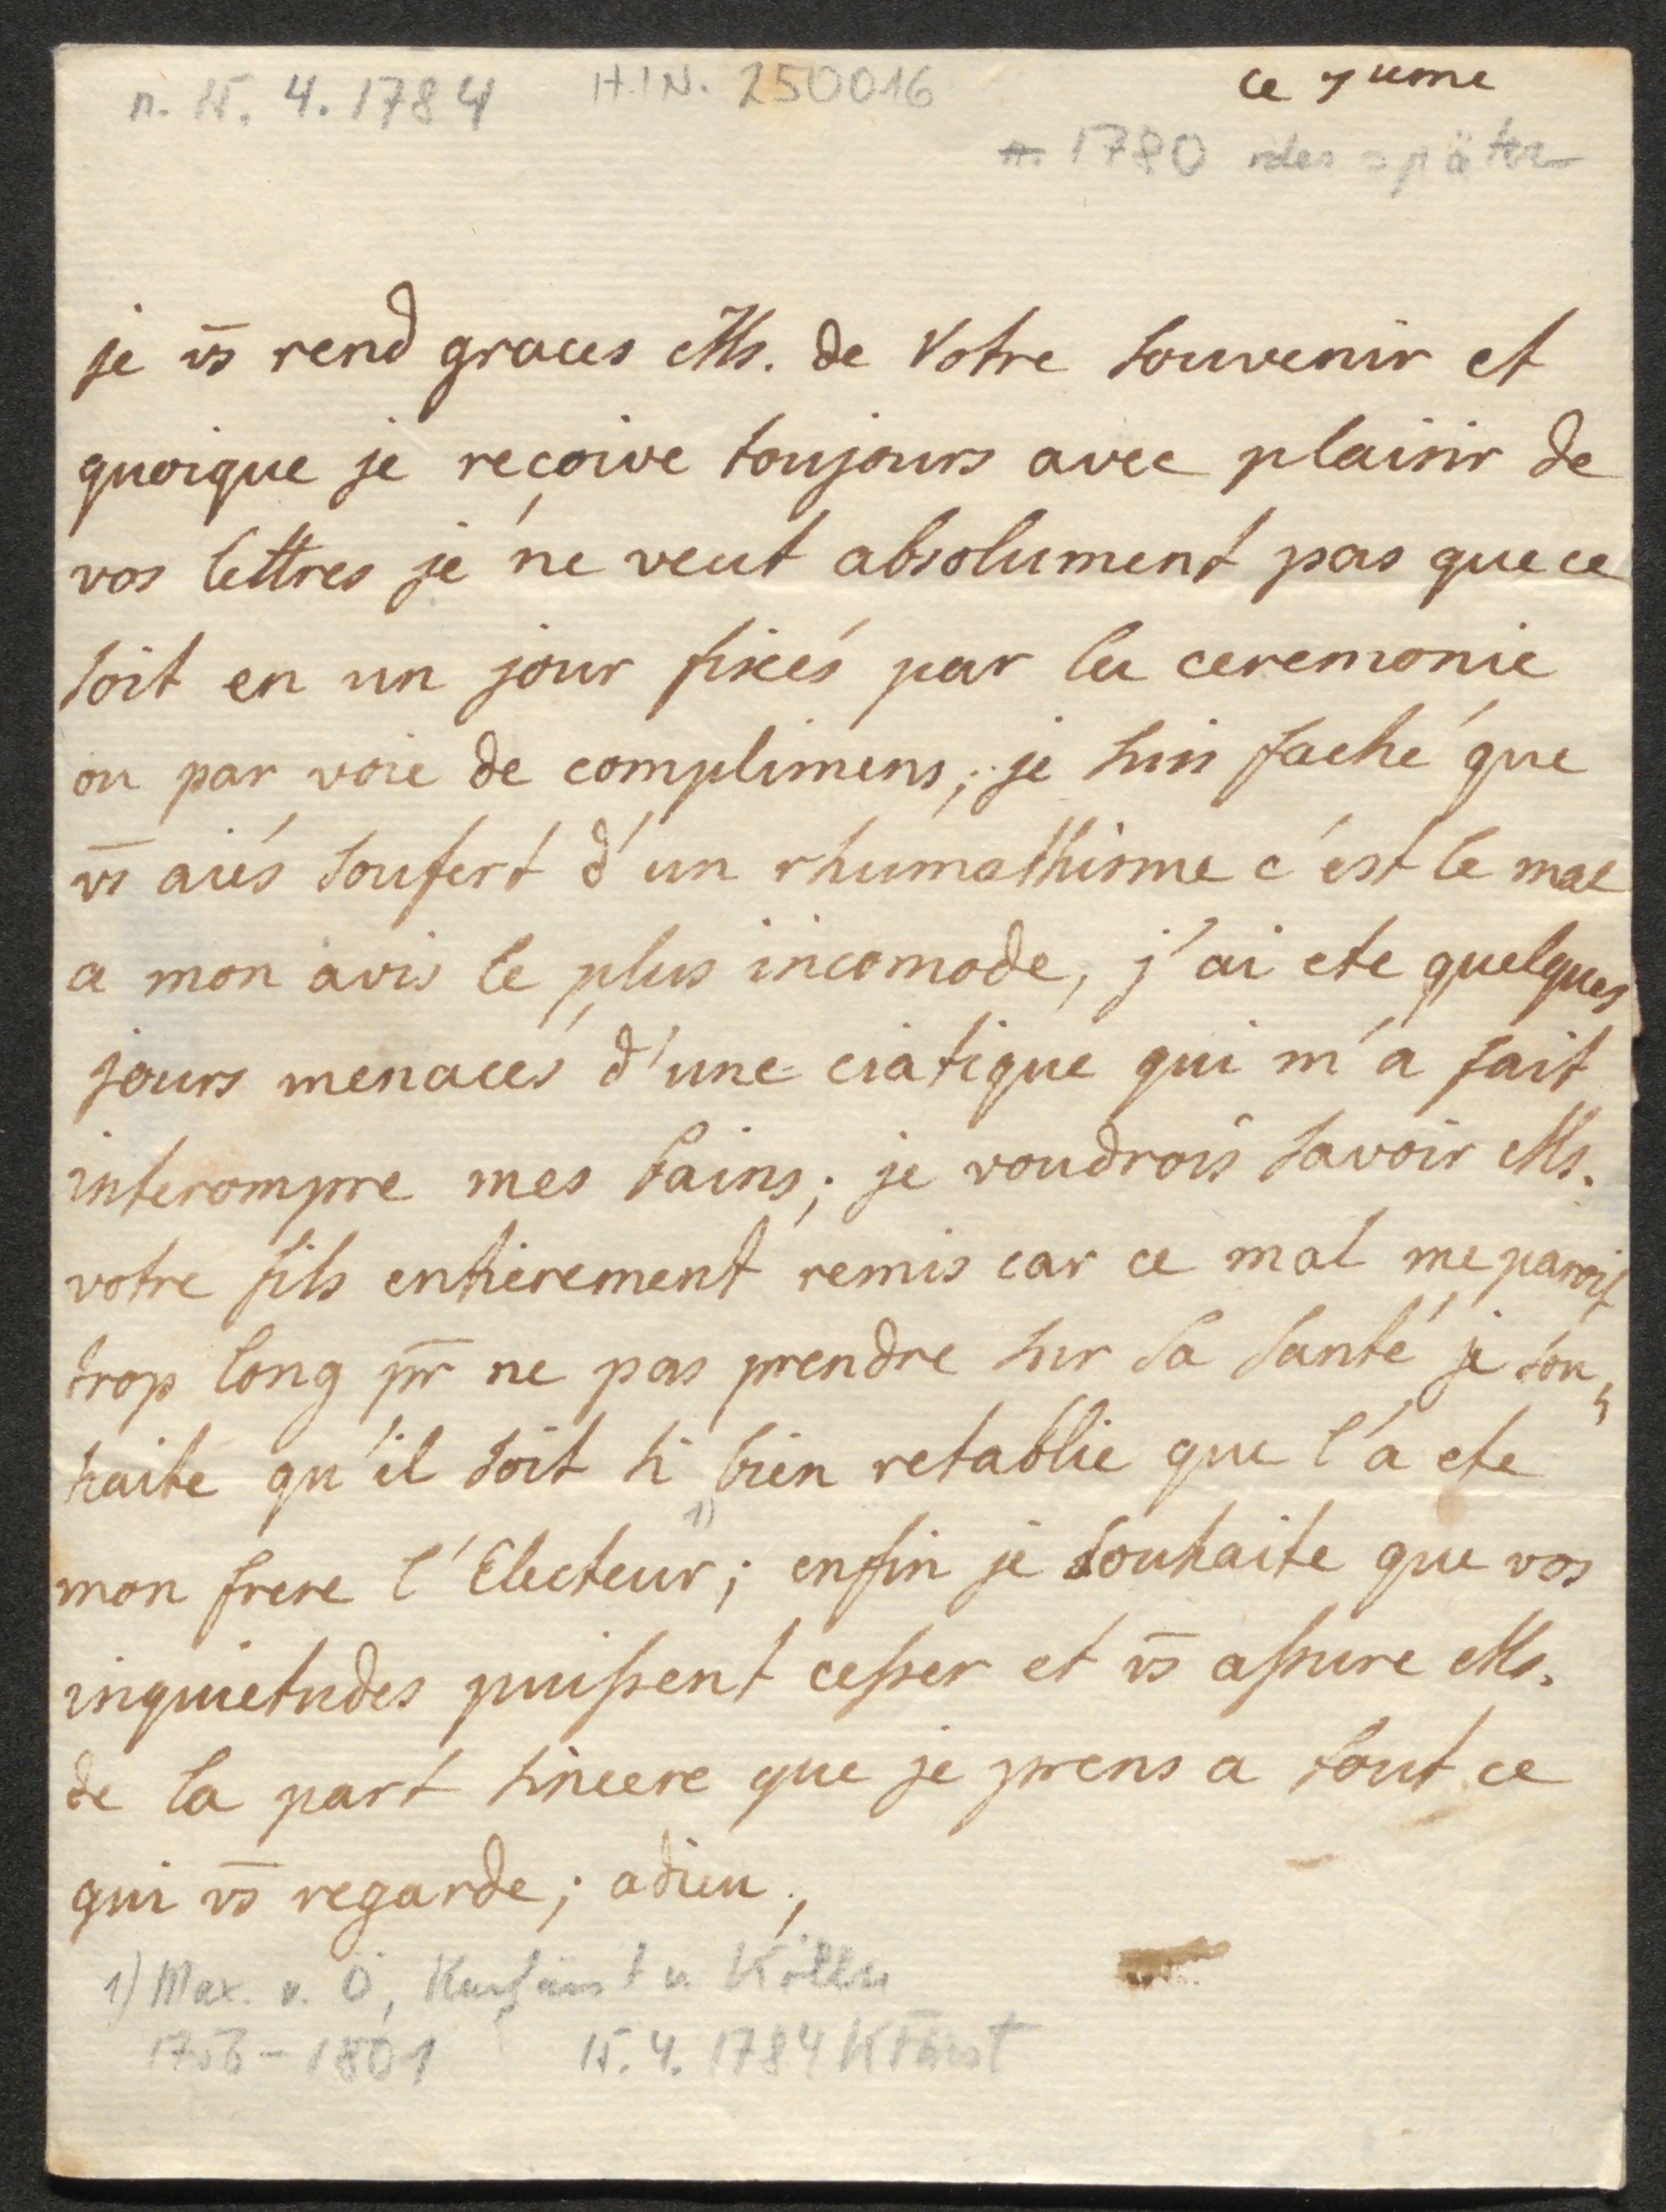 n. 15. 4. 1784 H.I.N. 250016 ce 7 ieme
1780 oder später
je vs̄ rend graces Ms. de Votre souvenir et
quoique je reçoive toujours avec plaisir de
vos lettres je ne veut absolument pas que ce
soit en un jour fixés par la ceremonie
ou par voie de complimens; je suis faché que
vs̄ aiés soufert d'un rhumathisme c'est le mal
a mon avis le plus incomode, j'ai ete quelques
jours menacés d'une ciatique qui m'a fait
interompre mes bains; je voudrois savoir Ms.
votre fils entierement remis car ce mal me paroit
trop long pr̄ ne pas prendre sur sa santé je sou,
haite qu'il soit si bien retablie que l'a ete
mon frere l'Electeur; 1) enfin je souhaite que vos
inquietudes puissent cesser et vs̄ assure Ms.
de la part sincere que je prens a tout ce
qui vs̄ regarde; adieu,
1) Max. v. Ö, Kurfürst v. Kölln
1756-1801 15. 4. 1784 KFürst